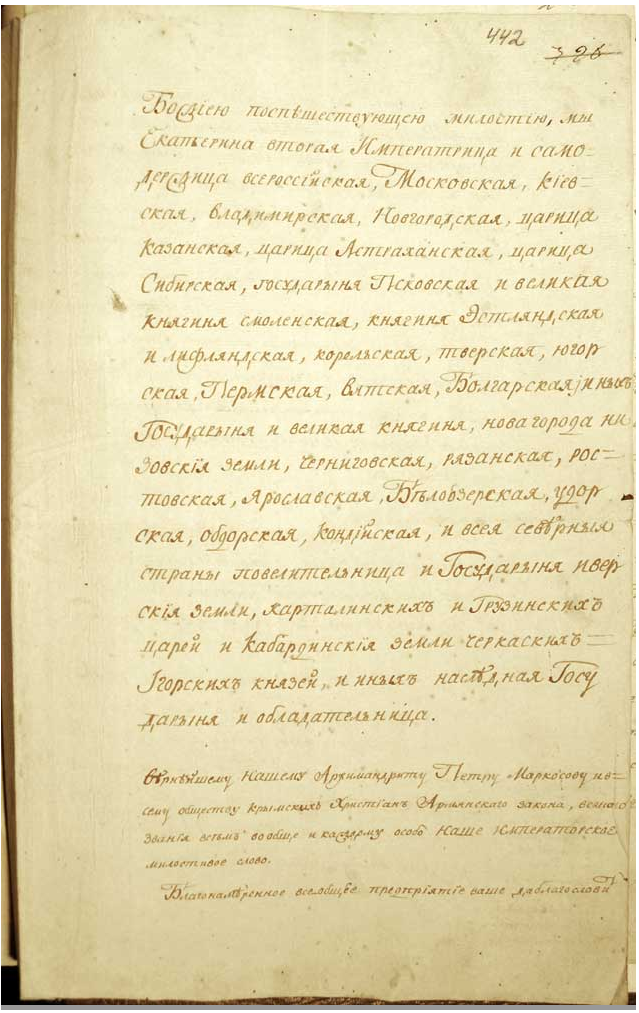 442
396
Божіею поспѣшествующею милостію, мы
Екатерина вторая Императрица и само-
держица всероссійская, Московская, кіев-
ская, владимирская, Новгородская, царица
казанская, царица Астраханская, царица
Сибирская, государыня Псковская и великая
княгиня смоленская, княгиня Эстляндская
и лифляндская, корельская, тверская, югор
ская, Пермская, вятская, Болгарская, и иныхъ
Государыня и великая княгиня, нова города ни
зовскія земли, черниговская, рязанская, рос-
товская, Ярославская, Бѣлоозерская, удор
ская, обдорская, кондійская, и всея сѣверныя
страны повелительница и Государыня ивер
скія земли, карталинскихъ и Грузинскихъ
царей и кабардинскія земли черкаскихъ-
Ігорскихъ князей, и иныхъ наслѣдная Госу
дарыня и обладательница.
Вѣрнѣйшему нашему Архимандриту Петру Маркосову и в-
сему обществу крымскихъ христіанъ Армянскаго закона, всякаго
званія всѣмъ вообще и каждому особо Наше императорское
милостивое слово.
Благонамѣренное всеобщее предпріятіе ваше да благослови